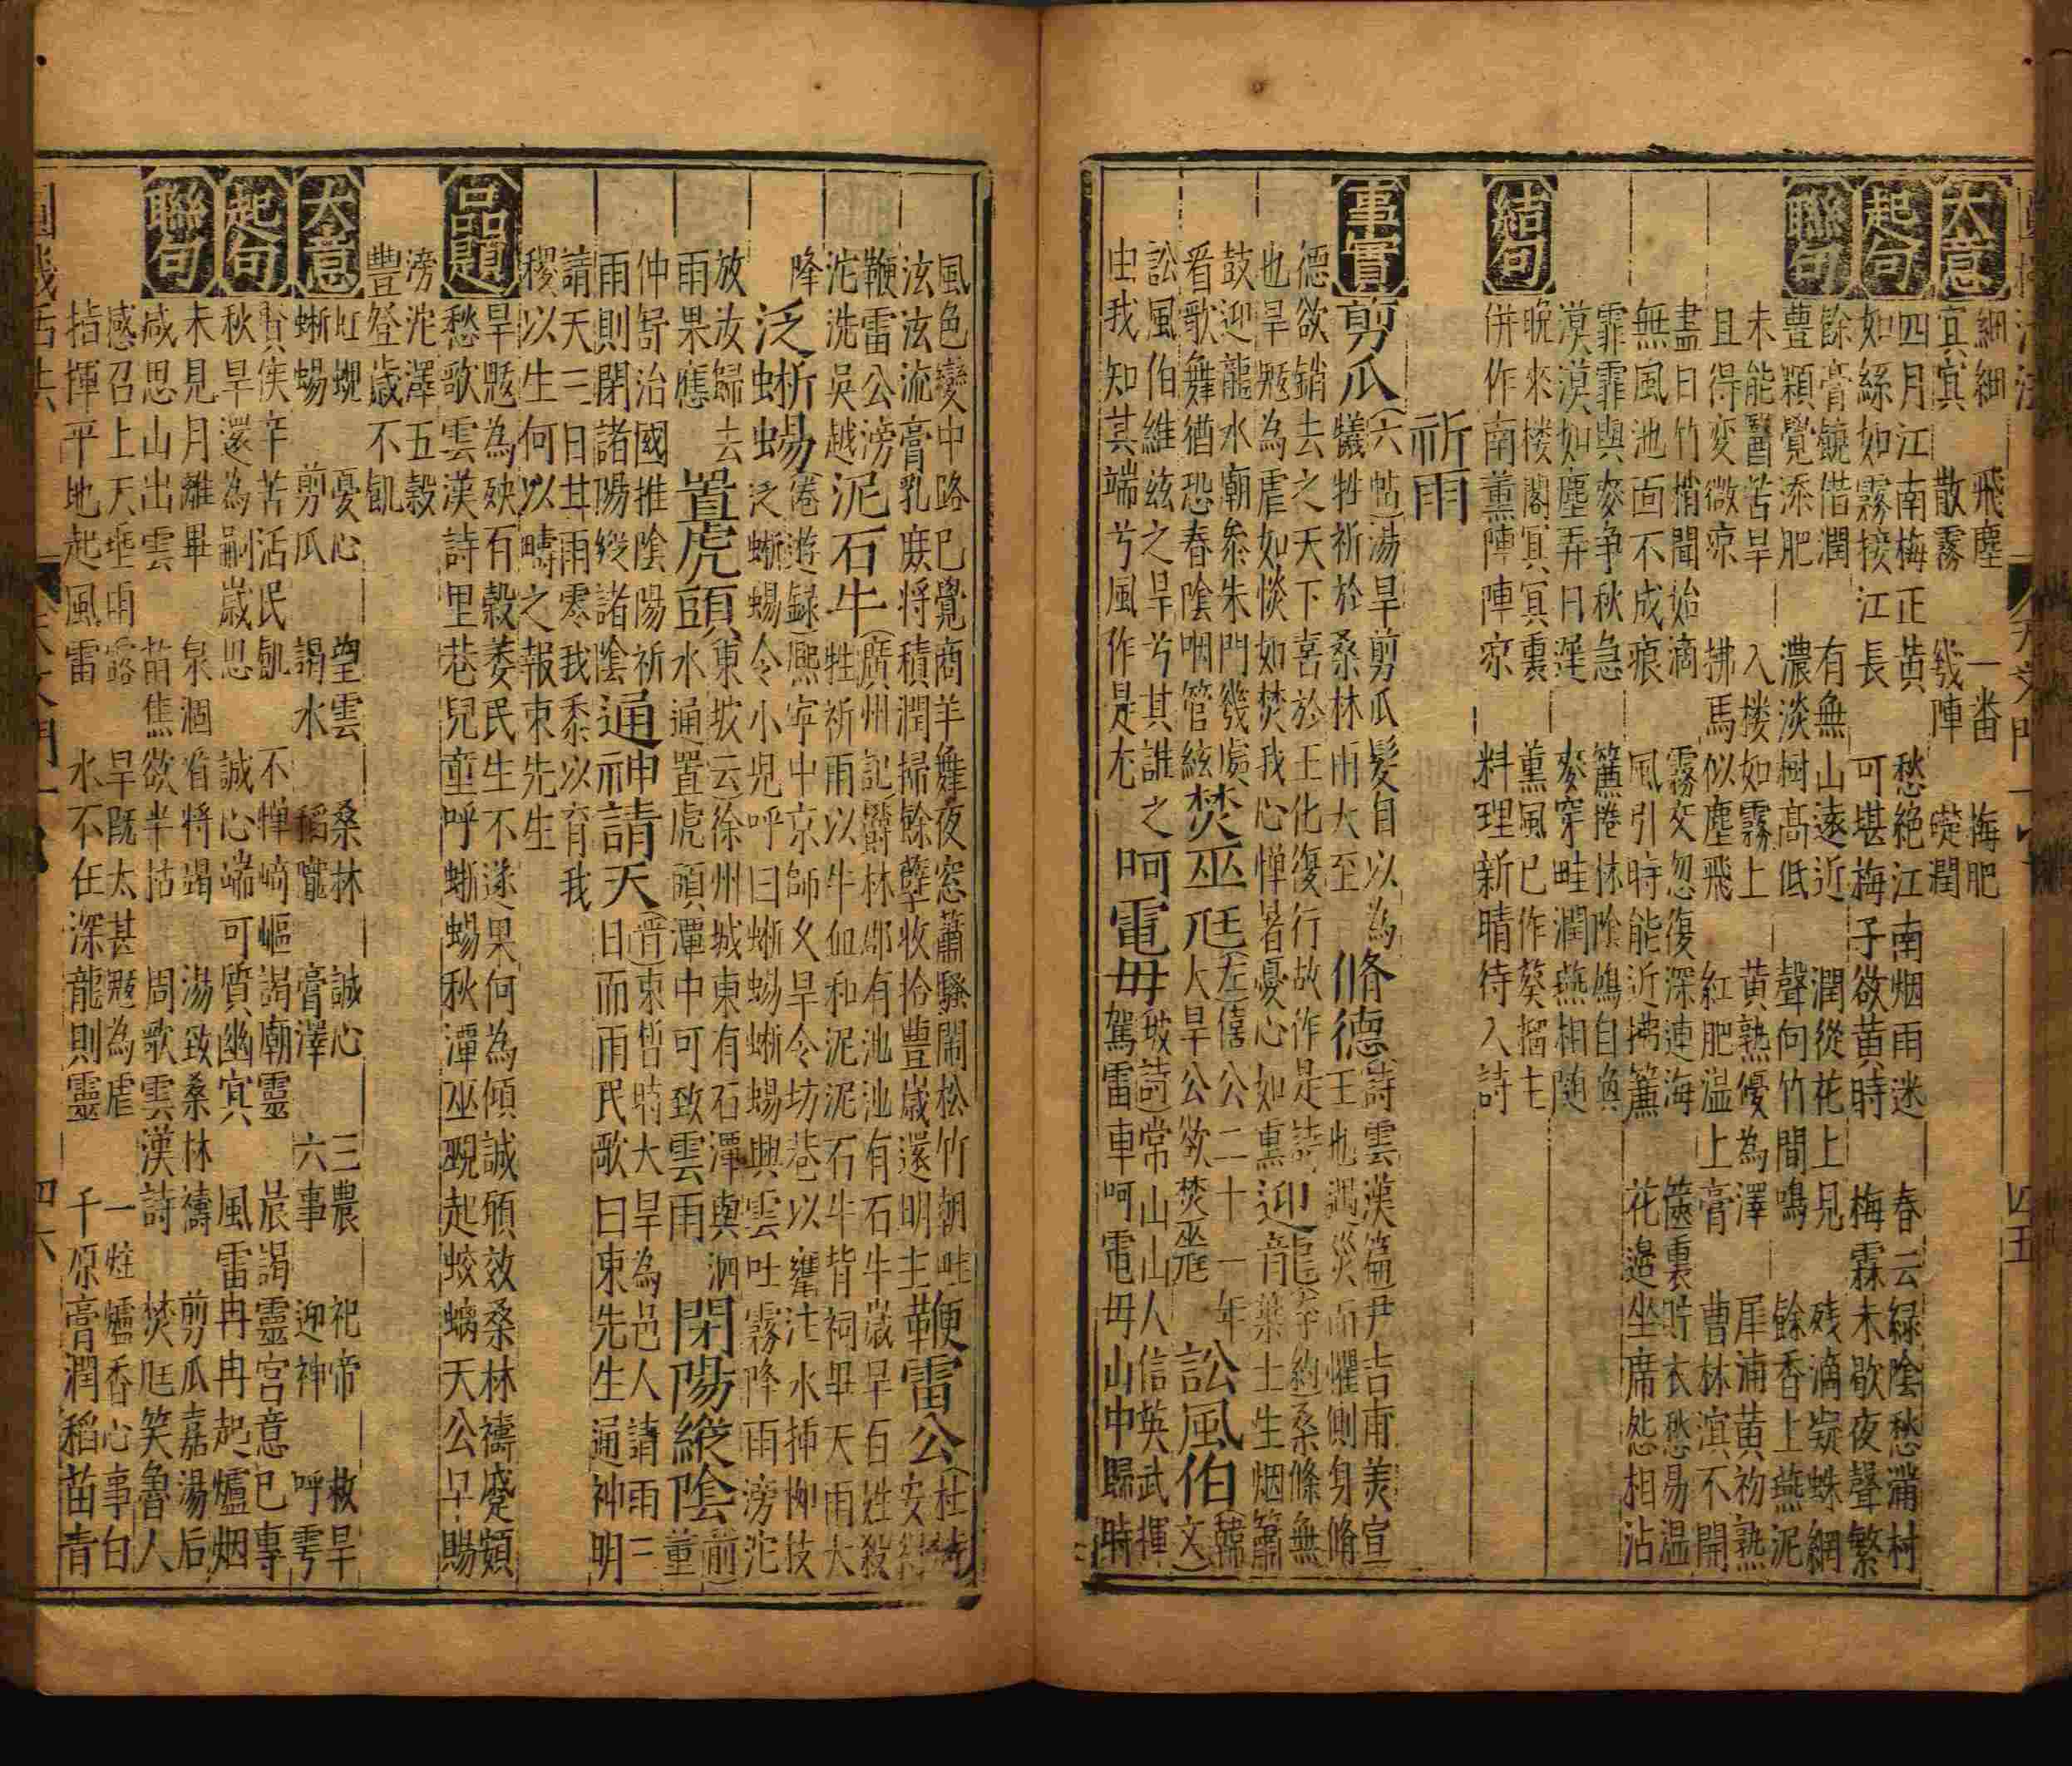 大意
細細　飛塵　一番　梅肥
冥冥　散霧　幾陣　礎潤
起句
四月江南梅正黃　愁絕江南烟雨迷　春云綠陰愁滿村
如絲如霧接江長　可堪梅子欲黃時　梅霖未歇夜聲繁
聯句
餘膏饒借潤　有無山遠近　潤從花上見　殘滴凝蛛網
豊顆覺添肥　濃淡樹高低　聲向竹間鳴　餘香上燕泥
未能醫苦旱　入楼如霧上　黃熟優為澤　犀浦黃初熟
且得变微凉　拂馬似塵飛　紅肥温上膏　曹林溟不開
盡日竹梢聞始滴　霧交忽復深連海　篋裏貯衣愁易温
無風池面不成痕　風引時能近拂簾　花邉坐席怨相沾
霏霏與麥争秋急　簾捲林陰鳩自喚
漠漠如塵弄日遲　麥穿畦潤燕相随
結句
晚來楼閣冥冥裏　薰風已作葵榴主
併作南薰陣陣凉　料理新晴待入詩
祈雨
事實
剪瓜（六帖）湯旱剪瓜髮自以為犧牲祈於桑林雨大至
脩德（詩雲漢篇尹吉甫美宣王也遇災而懼側身脩
德欲銷去之天下喜於王化復行故作是詩
也旱魃為虐如惔如焚我心憚暑憂心如熏
迎龍（李約）桑條無葉土生烟簫
鼓迎龍水廟前朱門幾處
看歌舞猶恐春陰咽管絃
焚巫尫（左）僖公二十一年大旱公欲焚巫尫
訟風伯（韓文）
訟風伯維兹之旱兮其誰之
由我知其端兮風作是尤
呵電母（坡詩）常山山人信英武揮駕雷車呵電母山中歸時
風色變中路已覺商羊舞夜窓蕭騷鬧松竹朝畦
泫泫流膏乳庶將積潤掃餘孽收拾豊歲還明主
鞭雷公（杜
鞭雷公滂
沱洗吳越
泥石牛（廣州記欝林郡有池池有石牛歲旱百姓殺
牲祈雨以牛血和泥泥石牛背祠畢天雨大
降
泛蜥蜴（倦遊録）熙寧中京師久旱令坊巷以甕注水揷柳枝
泛蜥蜴令小児呼曰蜥蜴蜥蜴興雲吐霧降雨滂沱
放汝歸去
置虎頭（東坡云）徐州城東有石潭與泗
水通置虎頭潭中可致雲雨
雨果應
閉陽縱陰（前）董
仲舒治國推陰陽祈
雨則閉諸陽縱諸陰
通神請天（晋）束晳時大旱為邑人請雨三
日而雨民歌曰束先生通神明
請天三日甘雨零我黍以育我
稷以生何以疇之報束先生
品題
旱魃為殃有榖萎民生不遂果何為傾誠頒效桑林禱蹙頞
愁歌雲漢詩里巷兒童呼蜥蜴秋潭巫覡起蛟螭天公早賜
滂沱澤五榖
豊登歲不飢
大意
虹蜺　憂心　望雲　桑林　誠心　三農　祀帝　救旱
蜥蜴　剪瓜　謁水　稻隴　膏澤　六事　迎神　呼雩
起句
賢侯辛苦活民飢　不憚崎嶇謁廟靈　晨謁靈宫意已專
秋旱還為嗣歲思　誠心端可質幽冥　風雷冉冉起爐烟
聯句
未見月離畢　泉涸看將竭　湯致桑林禱　剪瓜嘉湯后
咸思山出雲　苗焦欲半枯　周歌雲漢詩　焚尫笑魯人
感召上天垂雨露　旱旣太甚魃為虐　一炷爐香心事白
指揮平地起風雷　水不在深龍則靈　千原膏潤稻苗青
四五
四六